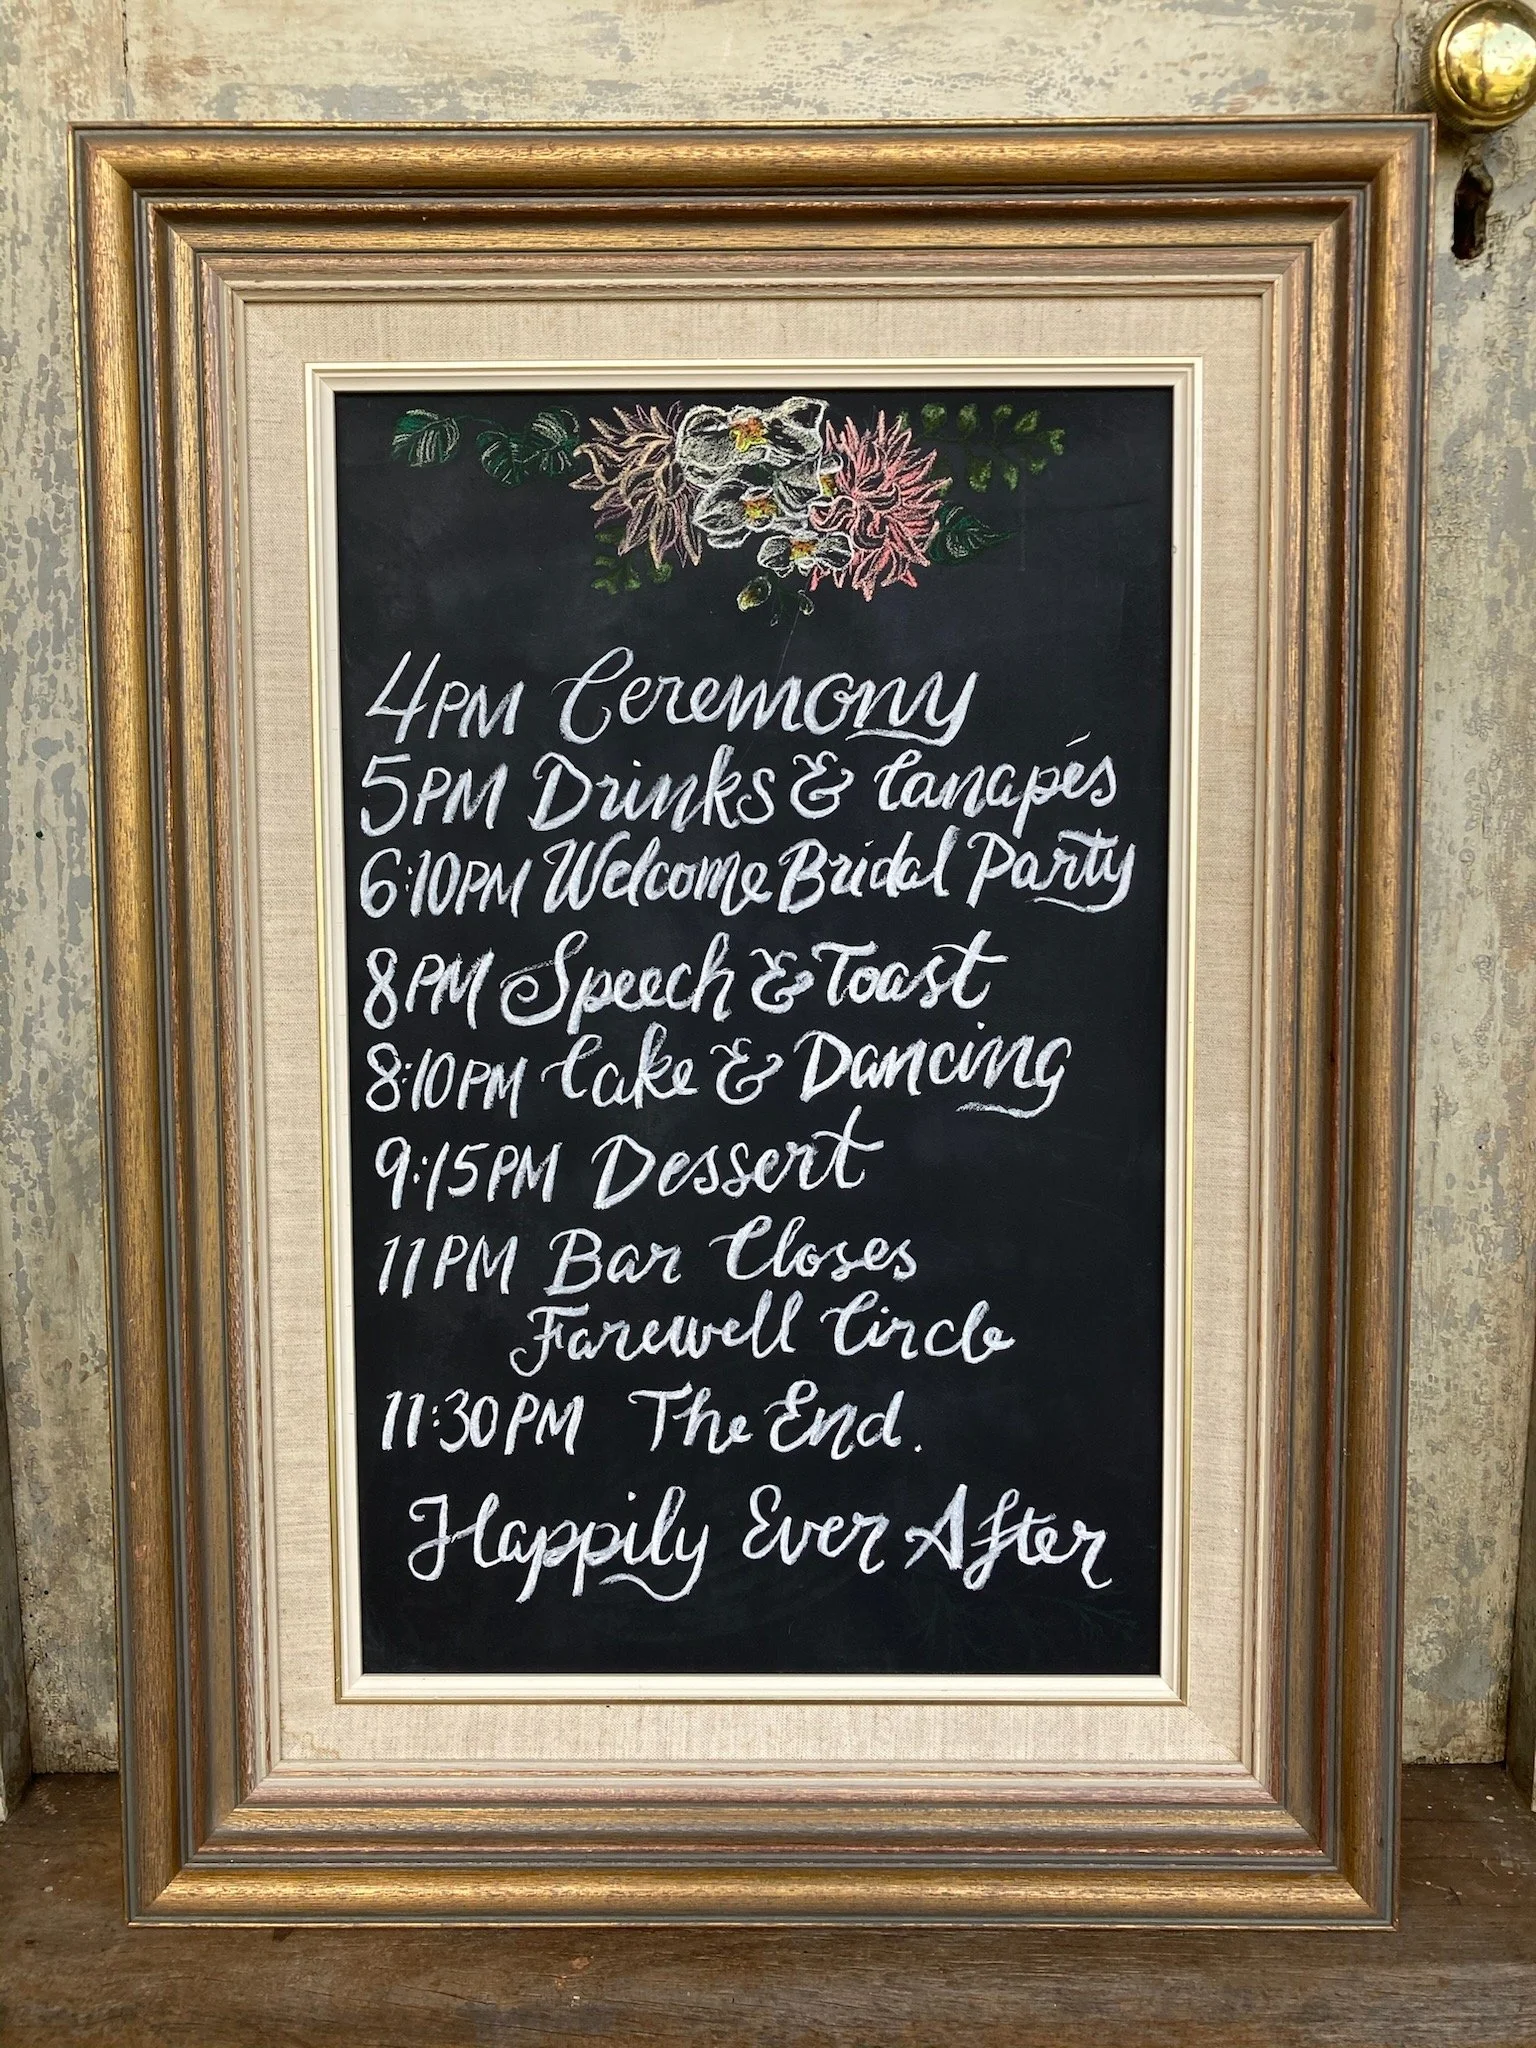 4PM Ceremony
5PM Drinks & Canapés
6:10PM Welcome Bridal Party
8PM Speech & Toast
8:10PM Cake & Dancing
9:15PM Dessert
11PM Bar Closes
Farewell Circle
11:30PM The End.
Happily Ever After